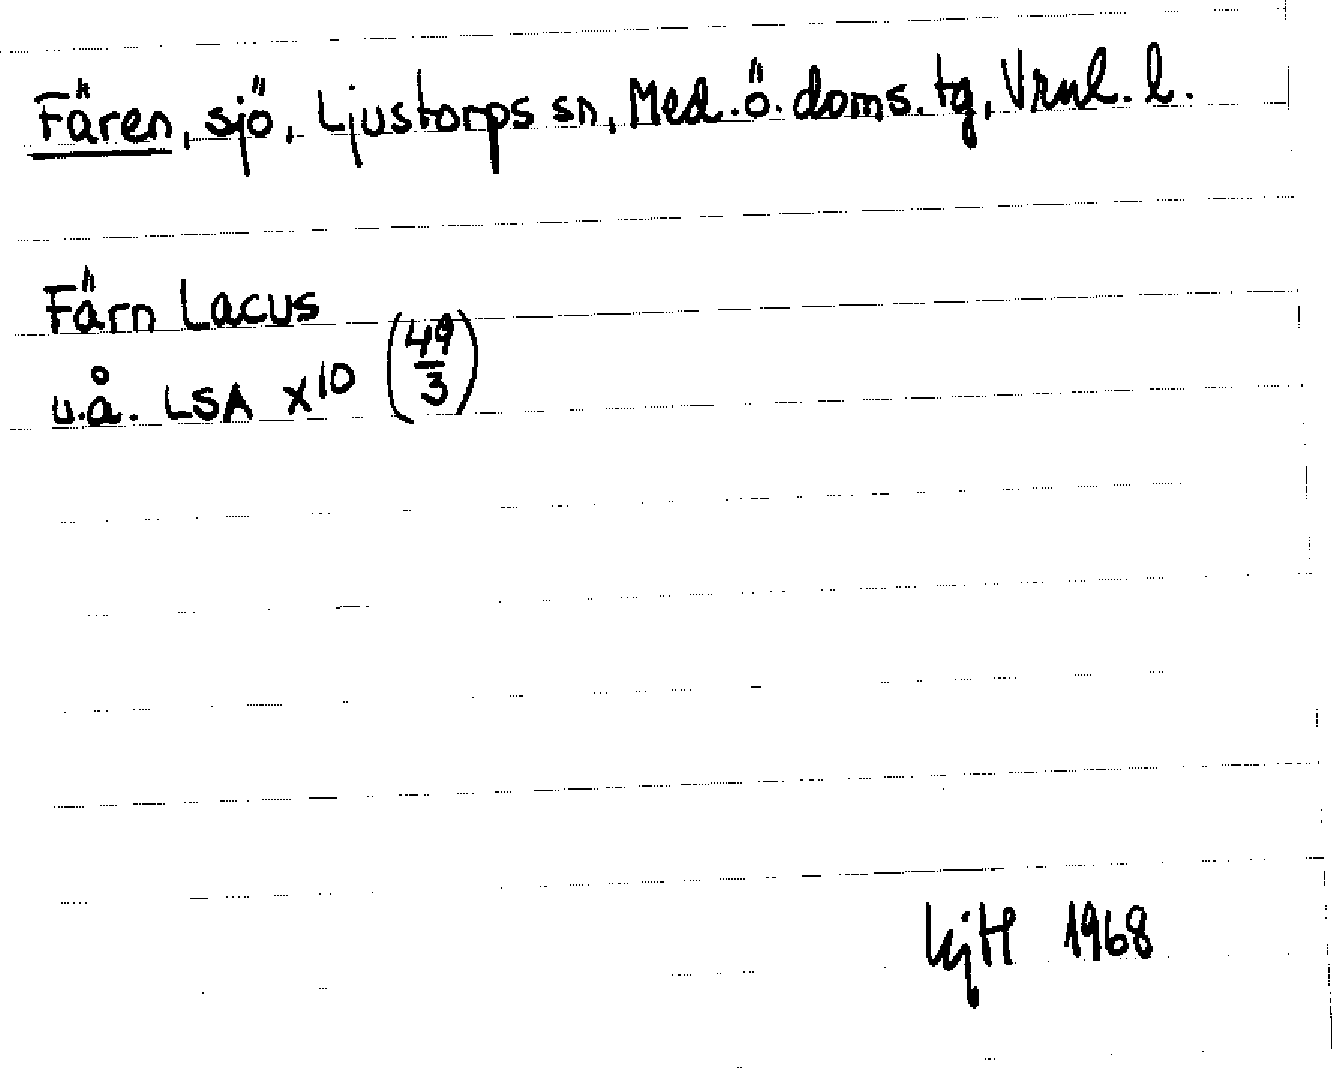 Fären, sjö, Ljustorps sn, Med. ö. doms. tg, Vrnl. l.
Färn Lacus
u.å. LSA X10 (49/3)
1968